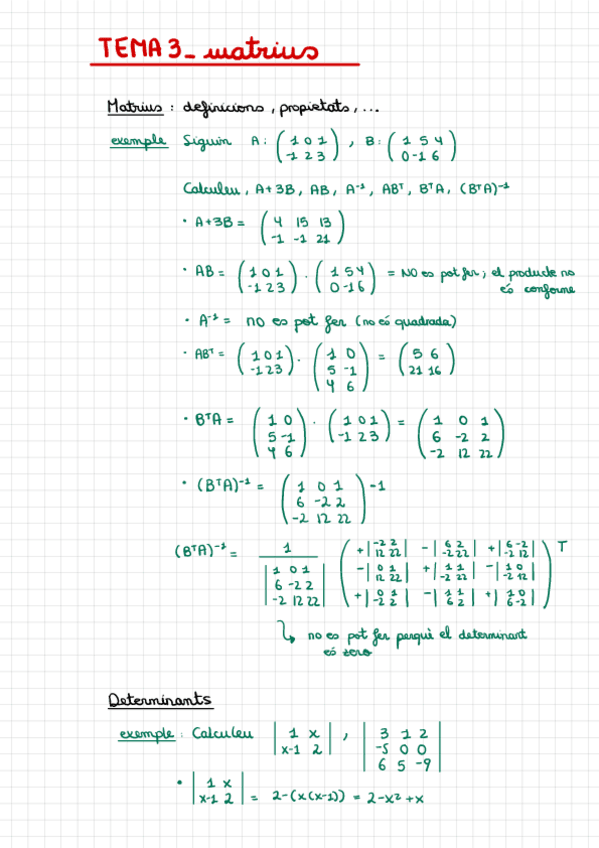 TEMA 3_ matrius
Matrius : definicions, propietats, ...
exemple Siguin A: ( 1 0 1 ; -1 2 3 ) , B: ( 1 5 4 ; 0 -1 6 )
Calculeu, A+3B, AB, A⁻¹, ABᵀ, BᵀA, (BᵀA)⁻¹
· A+3B = ( 4 15 13 ; -1 -1 21 )
· AB = ( 1 0 1 ; -1 2 3 ) · ( 1 5 4 ; 0 -1 6 ) = NO es pot fer; el producte no
és conforme
· A⁻¹ = no es pot fer (no és quadrada)
· ABᵀ = ( 1 0 1 ; -1 2 3 ) · ( 1 0 ; 5 -1 ; 4 6 ) = ( 5 6 ; 21 16 )
· BᵀA = ( 1 0 ; 5 -1 ; 4 6 ) · ( 1 0 1 ; -1 2 3 ) = ( 1 0 1 ; 6 -2 2 ; -2 12 22 )
· (BᵀA)⁻¹ = ( 1 0 1 ; 6 -2 2 ; -2 12 22 ) -1
(BᵀA)⁻¹ = 1 / | 1 0 1 ; 6 -2 2 ; -2 12 22 | ( +| -2 2 ; 12 22 | -| 6 2 ; -2 22 | +| 6 -2 ; -2 12 | ; -| 0 1 ; 12 22 | +| 1 1 ; -2 22 | -| 1 0 ; -2 12 | ; +| 0 1 ; -2 2 | -| 1 1 ; 6 2 | +| 1 0 ; 6 -2 | ) T
no es pot fer perquè el determinant
és zero
Determinants
exemple : Calculeu | 1 x ; x-1 2 | , | 3 1 2 ; -5 0 0 ; 6 5 -9 |
· | 1 x ; x-1 2 | = 2-(x(x-1)) = 2-x²+x